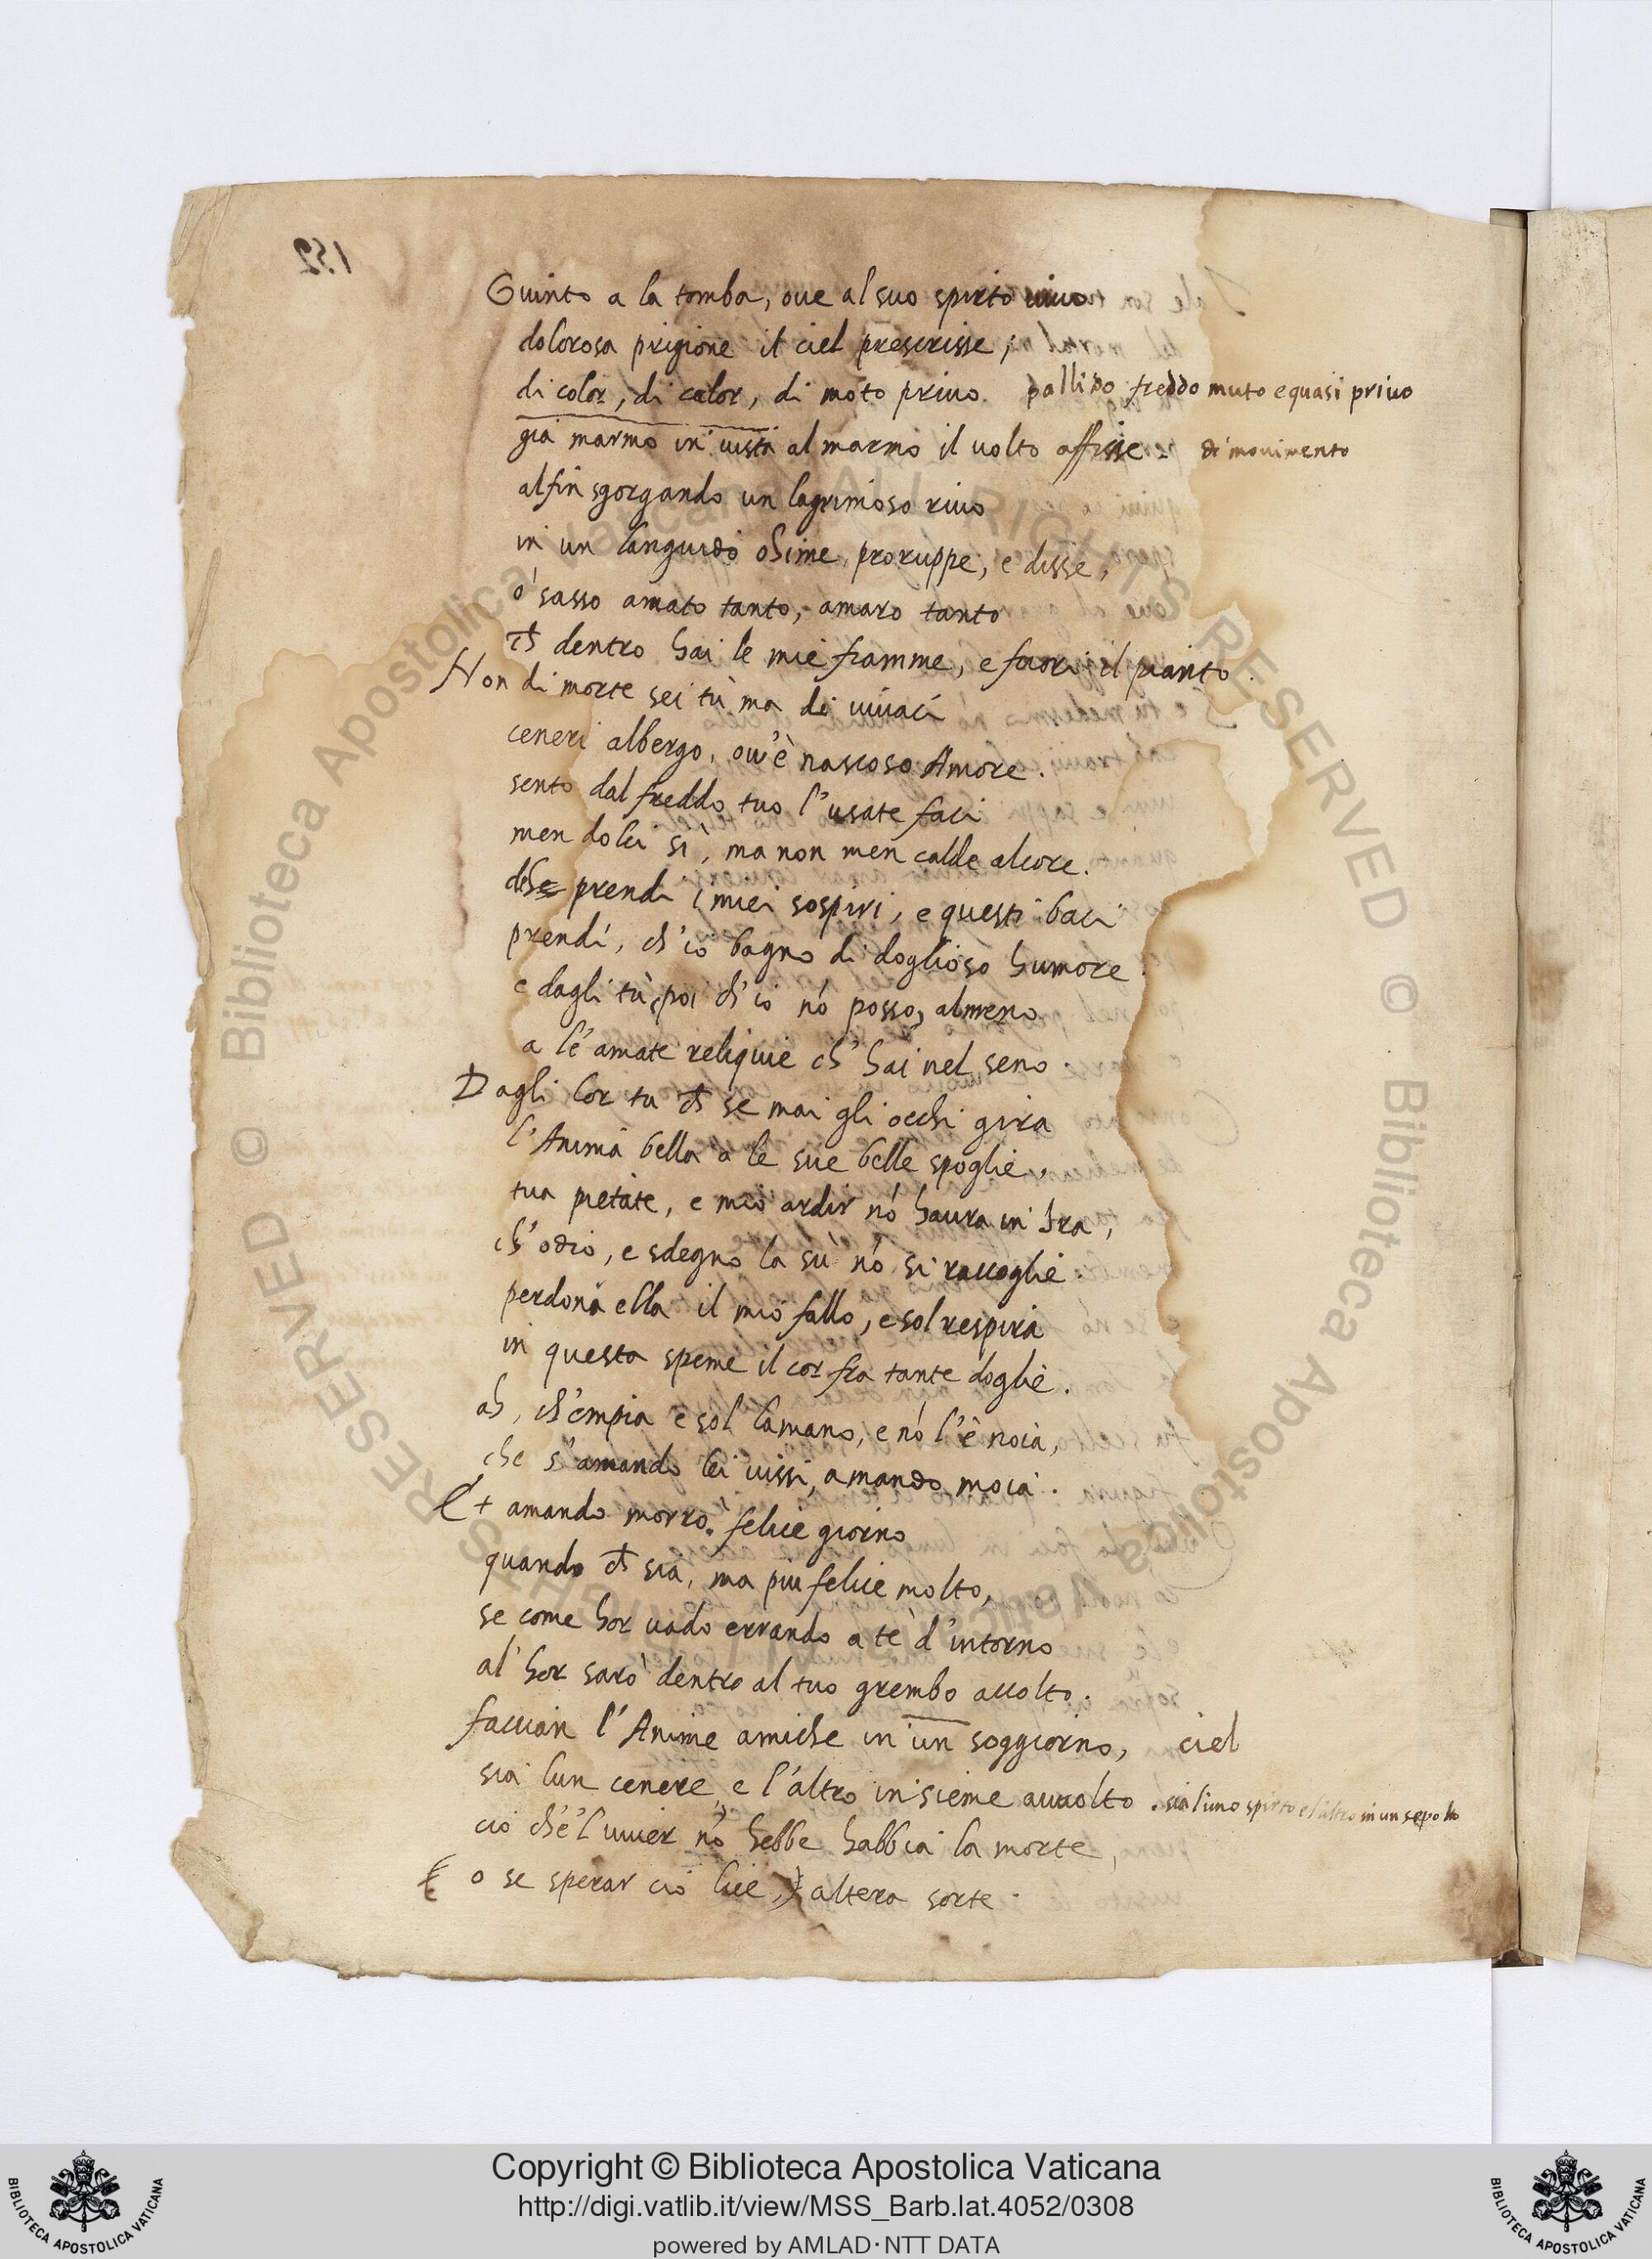 152
Giunto a la tomba, oue al suo spirto uiuo
dolorosa prigione il ciel prescrisse;
di color, di calor, di moto priuo. pallido freddo muto e quasi priuo
già marmo in uista al marmo il uolto affisse. di mouimento
alfin sgorgando un lagrimoso riuo
in un languido ohime proruppe, e disse,
ó sasso amato tanto, amaro tanto
ch̃ dentro hai le mie fiamme, e fuori il pianto.
Non di morte sei tù ma di uiuaci
ceneri albergo, ou'è nascoso Amore.
sento dal freddo tuo l'usate faci
men dolci sì, ma non men calde al core.
deh prendi i miei sospiri, e questi baci
prendi, ch'io bagno di doglioso humore
e dagli tù, poi ch'io nó posso, almeno
a le amate reliquie ch'hai nel seno.
Dagli lor tu ch̃ se mai gli occhi gira
l'Anima bella a le sue belle spoglie,
tua pietate, e mio ardir nó haura in Ira,
ch'odio, e sdegno la sù nó si raccoglie
perdona ella il mio fallo, e sol respira
in questa speme il cor fra tante doglie.
ah, ch'empia e sol la mano, e nó l'è noia,
che s'amando lei uissi, amando moia.
Et amando morrò. felice giorno
quando ch̃ sia, ma piu felice molto,
se come hor uado errando a tè d'intorno
al'hor sarò dentro al tuo grembo accolto.
faccian l'Anime amiche in un soggiorno, ciel
sia l'un cenere, e l'altro insieme auuolto. sia l'uno spirto e l'altro in un sepolto
ciò ché'l uiuer nó hebbe habbia la morte,
o se sperar ciò lice, altera sorte.
© Biblioteca Apostolica Vaticana ALL RIGHTS RESERVED
© Biblioteca Apostolica Vaticana ALL RIGHTS RESERVED
BIBLIOTECA APOSTOLICA VATICANA
Copyright © Biblioteca Apostolica Vaticana
http://digi.vatlib.it/view/MSS_Barb.lat.4052/0308
powered by AMLAD·NTT DATA
BIBLIOTECA APOSTOLICA VATICANA